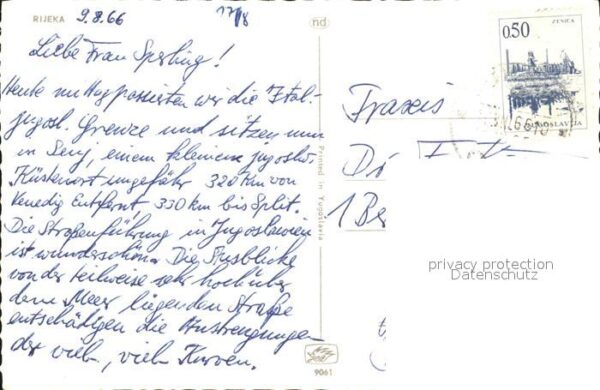 RIJEKA
9.8.66
17/8
nd
Liebe Frau Sperling!
Heute mittag passierten wir die Ital.-
jugosl. Grenze und sitzen nun
in Senj, einem kleinen jugoslw.
Küstenort ungefähr 320 km von
Venedig entfernt 350 km bis Split.
Die Straßenführung in Jugoslawien
ist wunderschön. Die Ausblicke
von der teilweise sehr hoch über
dem Meer liegenden Straße
entschädigen die Anstrengungen
der viele, viele Kurven.
Printed in Yugoslavia
9061
0.50
ZENICA
JUGOSLAVIA
Praxis
1 Ber
privacy protection
Datenschutz